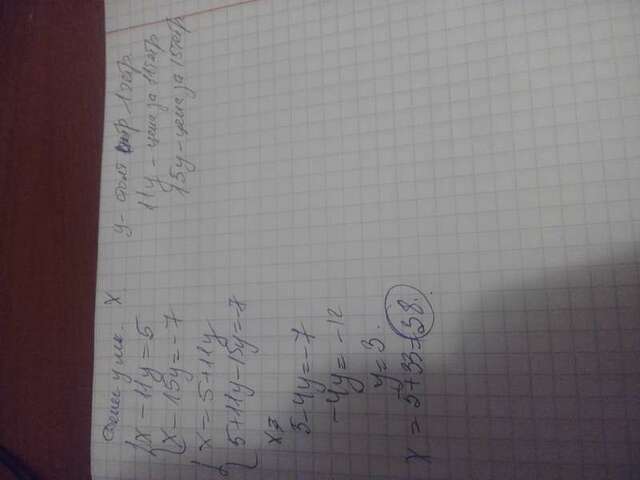 Денег у них X
y - стоит 1 тетр
11y - цена за 11 тетр
15y - цена за 15 тетр
{x - 11y = 5
{x - 15y = -7
{x = 5 + 11y
{5 + 11y - 15y = -7
x=
5 - 4y = -7
-4y = -12
y = 3.
x = 5 + 33 = 38.